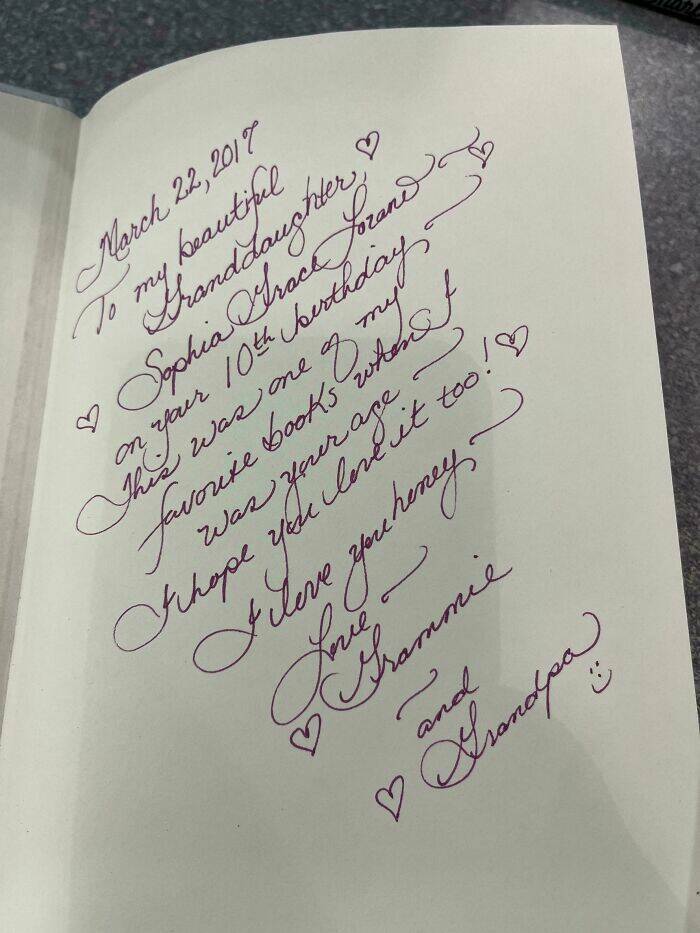 March 22, 2017
To my beautiful
Granddaughter,
Sophia Grace
on your 10th birthday
This was one of my
favourite books when I
was your age
I hope you love it too!
I love you honey
Love
Grammie
and
Grandpa